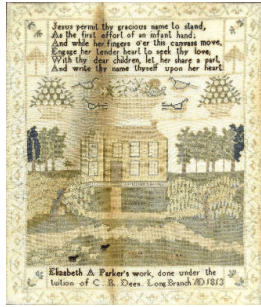 Jesus permit thy gracious name to stand,
As the first effort of an infant hand;
And while her fingers o'er this canvass move,
Engage her tender heart to seek thy love,
With thy dear children, let her share a part,
And write thy name thyself upon her heart
Elizabeth A Parker's work, done under the
tuition of C. R. Dees. Long Branch AD 1813